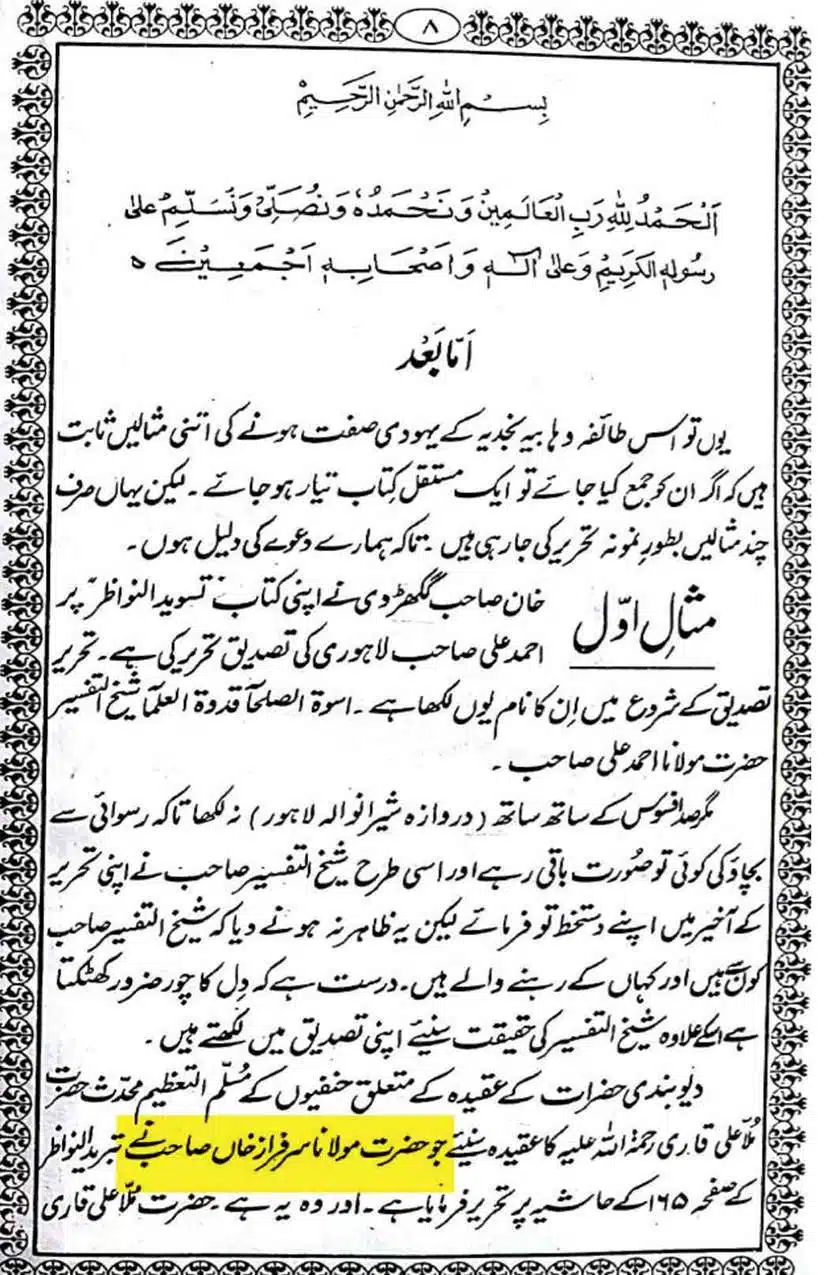 ۸
بِسْمِ اللهِ الرَّحْمٰنِ الرَّحِيْمِ
اَلْحَمْدُ لِلّٰهِ رَبِّ الْعَالَمِيْنَ وَنَحْمَدُهٗ وَنُصَلِّىْ وَنُسَلِّمُ عَلٰى
رسولهِ الكريم وَعَلٰى آلهٖ وَاَصْحَابِهٖ اَجْمَعِيْنَ ہ
اَمَّا بَعْد
یوں تو اس طائفہ وہابیہ نجدیہ کے یہودی صفت ہونے کی اتنی مثالیں ثابت
ہیں کہ اگر ان کو جمع کیا جائے تو ایک مستقل کتاب تیار ہو جائے۔ لیکن یہاں صرف
چند مثالیں بطورِ نمونہ تحریر کی جا رہی ہیں۔ تاکہ ہمارے دعوے کی دلیل ہوں۔
مثالِ اوّل خان صاحب گکھڑوی نے اپنی کتاب تسوید النواظر" پر
احمد علی صاحب لاہوری کی تصدیق تحریر کی ہے۔ تحریر
تصدیق کے شروع میں اِن کا نام یوں لکھا ہے۔ اسوۃ الصلحآ قدوۃ العلمآ شیخ التفسیر
حضرت مولانا احمد علی صاحب۔
مگر صد افسوس کے ساتھ ساتھ (دروازہ شیرانوالہ لاہور) نہ لکھا تاکہ رسوائی سے
بچاؤ کی کوئی تو صُورت باقی رہے اور اسی طرح شیخ التفسیر صاحب نے اپنی تحریر
کے آخیر میں اپنے دستخط تو فرمائے لیکن یہ ظاہر نہ ہونے دیا کہ شیخ التفسیر صاحب
کون سے ہیں اور کہاں کے رہنے والے ہیں۔ درست ہے کہ دِل کا چور ضرور کھٹکتا
ہے اسکے علاوہ شیخ التفسیر کی حقیقت سنیئے اپنی تصدیق میں لکھتے ہیں۔
دیوبندی حضرات کے عقیدہ کے متعلق حنفیوں کے مُسلّم التعظیم محدّث حضرت
مُلّا علی قاری رحمۃ اللہ علیہ کا عقیدہ سنیئے جو حضرت مولانا سرفراز خاں صاحب نے تبرید النواظر
کے صفحہ ۱۶۵ کے حاشیہ پر تحریر فرمایا ہے۔ اور وہ یہ ہے۔ حضرت مُلّا علی قاری